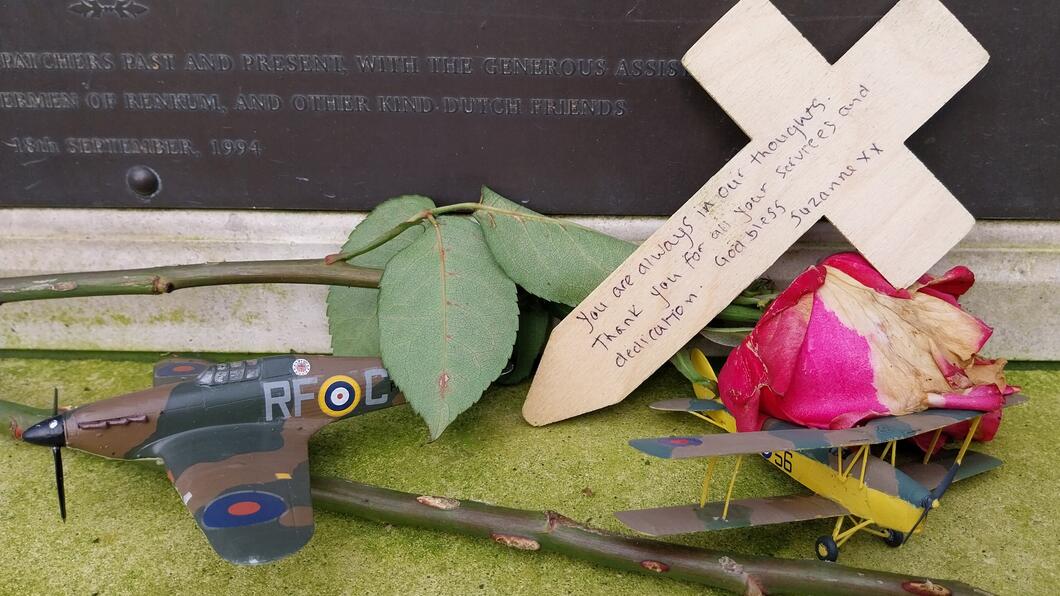 PATCHERS PAST AND PRESENT, WITH THE GENEROUS ASSIS
ERMEN OF RENKUM, AND OTHER KIND DUTCH FRIENDS
18th SEPTEMBER, 1994
You are always in our thoughts.
Thank you for all your services and
dedication. God bless Suzanne xx
RF C
56